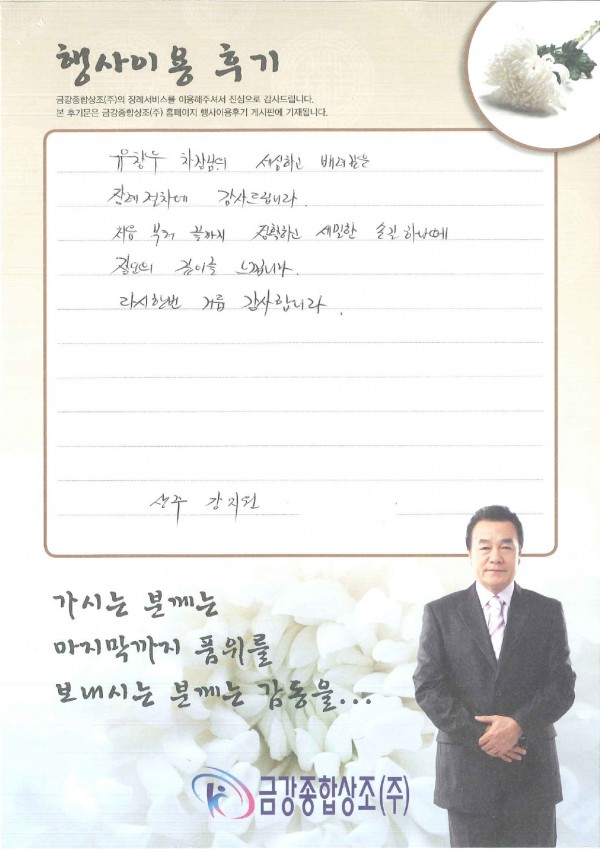 행사이용 후기
금강종합상조(주)의 장례서비스를 이용해주셔서 진심으로 감사드립니다.
본 후기문은 금강종합상조(주) 홈페이지 행사이용후기 게시판에 기재됩니다.
차장님의 섬세하고
장례절차에 감사드립니다.
처음 부터 끝까지 정확하고 세밀한 손길 하나에
깊이를 느낍니다.
다시한번 감사합니다.
상주 강지원
가시는 분께는
마지막까지 품위를
보내시는 분께는 감동을...
금강종합상조(주)